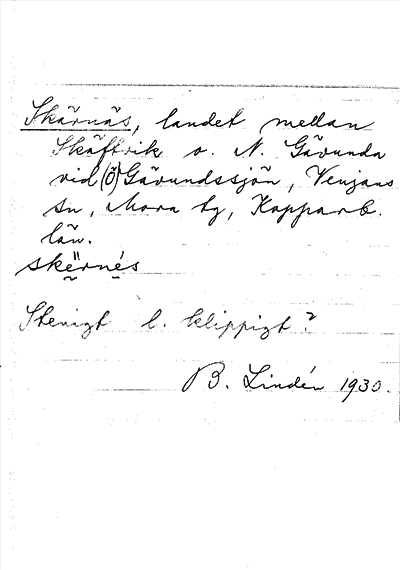 Skärnäs, landet mellan
Skäftvik o. N. Gävunda
vid (Ö) Gävundssjön, Venjans
sn, Mora tg, Kopparb.
län.
skɛ̈rnés
Stenigt l. klippigt?
B. Lindén 1930.